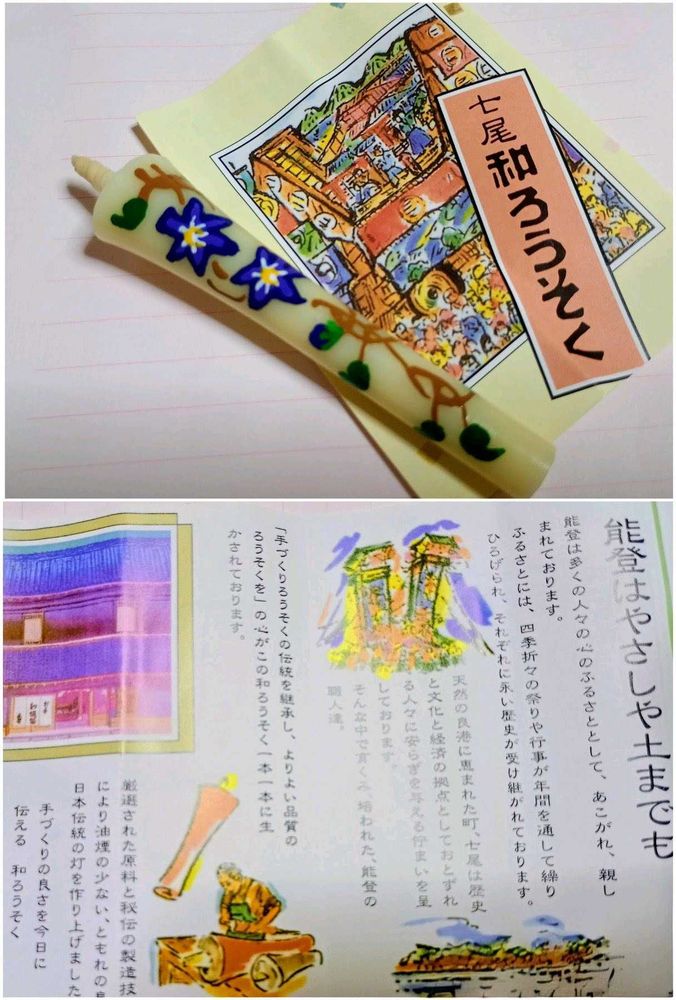 七尾
和ろうそく
能登はやさしや土までも
能登は多くの人々の心のふるさととして、あこがれ、親し
まれております。
ふるさとには、四季折々の祭りや行事が年間を通して繰り
ひろげられ、それぞれに永い歴史が受け継がれております。
天然の良港に恵まれた町、七尾は歴史
と文化と経済の拠点としておとずれ
る人々に安らぎを与える佇まいを呈
しております。
そんな中で育くみ、培われた、能登の
職人達。
「手づくりろうそくの伝統を継承し、よりよい品質の
ろうそくを」の心がこの和ろうそく一本一本に生
かされております。
厳選された原料と秘伝の製造技
により油煙の少ない、ともれの
日本伝統の灯を作り上げました
手づくりの良さを今日に
伝える 和ろうそく